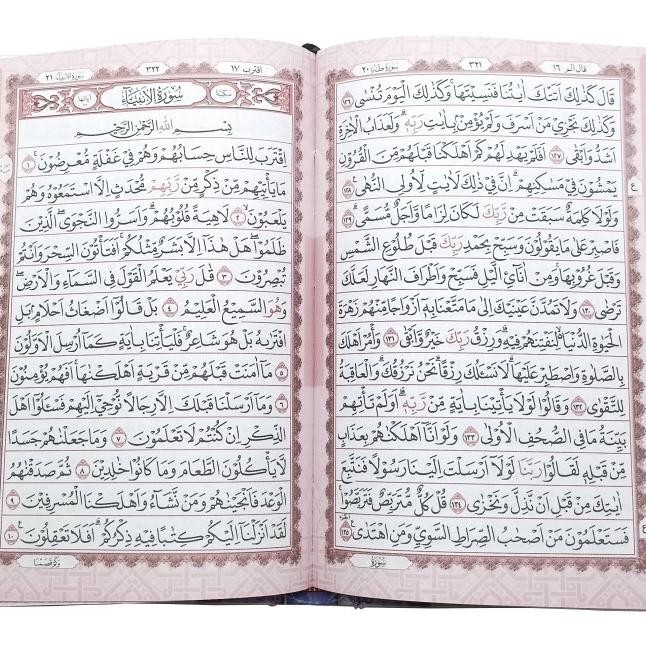 قال الم ١٦
٣٢١
سورة طه ٢٠
قَالَ كَذٰلِكَ اَتَتْكَ اٰيٰتُنَا فَنَس۪يتَهَاۚ وَكَذٰلِكَ الْيَوْمَ تُنْسٰى ١٢٦
وَكَذٰلِكَ نَجْز۪ي مَنْ اَسْرَفَ وَلَمْ يُؤْمِنْ بِاٰيَاتِ رَبِّه۪ۜ وَلَعَذَابُ الْاٰخِرَةِ
اَشَدُّ وَاَبْقٰى ١٢٧ اَفَلَمْ يَهْدِ لَهُمْ كَمْ اَهْلَكْنَا قَبْلَهُمْ مِنَ الْقُرُونِ
يَمْشُونَ ف۪ي مَسَاكِنِهِمْۜ اِنَّ ف۪ي ذٰلِكَ لَاٰيَاتٍ لِاُو۬لِي النُّهٰى ١٢٨
وَلَوْلَا كَلِمَةٌ سَبَقَتْ مِنْ رَبِّكَ لَكَانَ لِزَامًا وَاَجَلٌ مُسَمًّىۜ ١٢٩
فَاصْبِرْ عَلٰى مَا يَقُولُونَ وَسَبِّحْ بِحَمْدِ رَبِّكَ قَبْلَ طُلُوعِ الشَّمْسِ
وَقَبْلَ غُرُوبِهَاۚ وَمِنْ اٰنَآئِ الَّيْلِ فَسَبِّحْ وَاَطْرَافَ النَّهَارِ لَعَلَّكَ
تَرْضٰى ١٣٠ وَلَا تَمُدَّنَّ عَيْنَيْكَ اِلٰى مَا مَتَّعْنَا بِه۪ٓ اَزْوَاجًا مِنْهُمْ زَهْرَةَ
الْحَيٰوةِ الدُّنْيَا لِنَفْتِنَهُمْ ف۪يهِۜ وَرِزْقُ رَبِّكَ خَيْرٌ وَاَبْقٰى ١٣١ وَأْمُرْ اَهْلَكَ
بِالصَّلٰوةِ وَاصْطَبِرْ عَلَيْهَاۜ لَا نَسْـَٔلُكَ رِزْقًاۜ نَحْنُ نَرْزُقُكَۜ وَالْعَاقِبَةُ
لِلتَّقْوٰى ١٣٢ وَقَالُوا لَوْلَا يَأْت۪ينَا بِاٰيَةٍ مِنْ رَبِّه۪ۜ اَوَلَمْ تَأْتِهِمْ
بَيِّنَةُ مَا فِي الصُّحُفِ الْاُو۫لٰى ١٣٣ وَلَوْ اَنَّٓا اَهْلَكْنَاهُمْ بِعَذَابٍ
مِنْ قَبْلِه۪ لَقَالُوا رَبَّنَا لَوْلَٓا اَرْسَلْتَ اِلَيْنَا رَسُولًا فَنَتَّبِعَ
اٰيَاتِكَ مِنْ قَبْلِ اَنْ نَذِلَّ وَنَخْزٰى ١٣٤ قُلْ كُلٌّ مُتَرَبِّصٌ فَتَرَبَّصُواۚ
فَسَتَعْلَمُونَ مَنْ اَصْحَابُ الصِّرَاطِ السَّوِيِّ وَمَنِ اهْتَدٰى ١٣٥
سورة
اقترب ١٧
٣٢٢
سورة الانبياء ٢١
مكية
سُورَةُ الْاَنْبِيَٓاءِ
بِسْمِ اللّٰهِ الرَّحْمٰنِ الرَّح۪يمِ
اِقْتَرَبَ لِلنَّاسِ حِسَابُهُمْ وَهُمْ ف۪ي غَفْلَةٍ مُعْرِضُونَۚ ١
مَا يَأْت۪يهِمْ مِنْ ذِكْرٍ مِنْ رَبِّهِمْ مُحْدَثٍ اِلَّا اسْتَمَعُوهُ وَهُمْ
يَلْعَبُونَۙ ٢ لَاهِيَةً قُلُوبُهُمْۜ وَاَسَرُّوا النَّجْوٰىۗ اَلَّذ۪ينَ
ظَلَمُواۗ هَلْ هٰذَٓا اِلَّا بَشَرٌ مِثْلُكُمْۚ اَفَتَأْتُونَ السِّحْرَ وَاَنْتُمْ
تُبْصِرُونَ ٣ قَالَ رَبّ۪ي يَعْلَمُ الْقَوْلَ فِي السَّمَٓاءِ وَالْاَرْضِۘ
وَهُوَ السَّم۪يعُ الْعَل۪يمُ ٤ بَلْ قَالُٓوا اَضْغَاثُ اَحْلَامٍ بَلِ
افْتَرٰيهُ بَلْ هُوَ شَاعِرٌۚ فَلْيَأْتِنَا بِاٰيَةٍ كَمَٓا اُرْسِلَ الْاَوَّلُونَ
٥ مَٓا اٰمَنَتْ قَبْلَهُمْ مِنْ قَرْيَةٍ اَهْلَكْنَاهَاۚ اَفَهُمْ يُؤْمِنُونَ
٦ وَمَٓا اَرْسَلْنَا قَبْلَكَ اِلَّا رِجَالًا نُوح۪ٓي اِلَيْهِمْ فَسْـَٔلُٓوا اَهْلَ
الذِّكْرِ اِنْ كُنْتُمْ لَا تَعْلَمُونَ ٧ وَمَا جَعَلْنَاهُمْ جَسَدًا
لَا يَأْكُلُونَ الطَّعَامَ وَمَا كَانُوا خَالِد۪ينَ ٨ ثُمَّ صَدَقْنَاهُمُ
الْوَعْدَ فَاَنْجَيْنَاهُمْ وَمَنْ نَشَٓاءُ وَاَهْلَكْنَا الْمُسْرِف۪ينَ ٩
لَقَدْ اَنْزَلْنَٓا اِلَيْكُمْ كِتَابًا ف۪يهِ ذِكْرُكُمْۜ اَفَلَا تَعْقِلُونَ۟ ١٠
وكم قصمنا